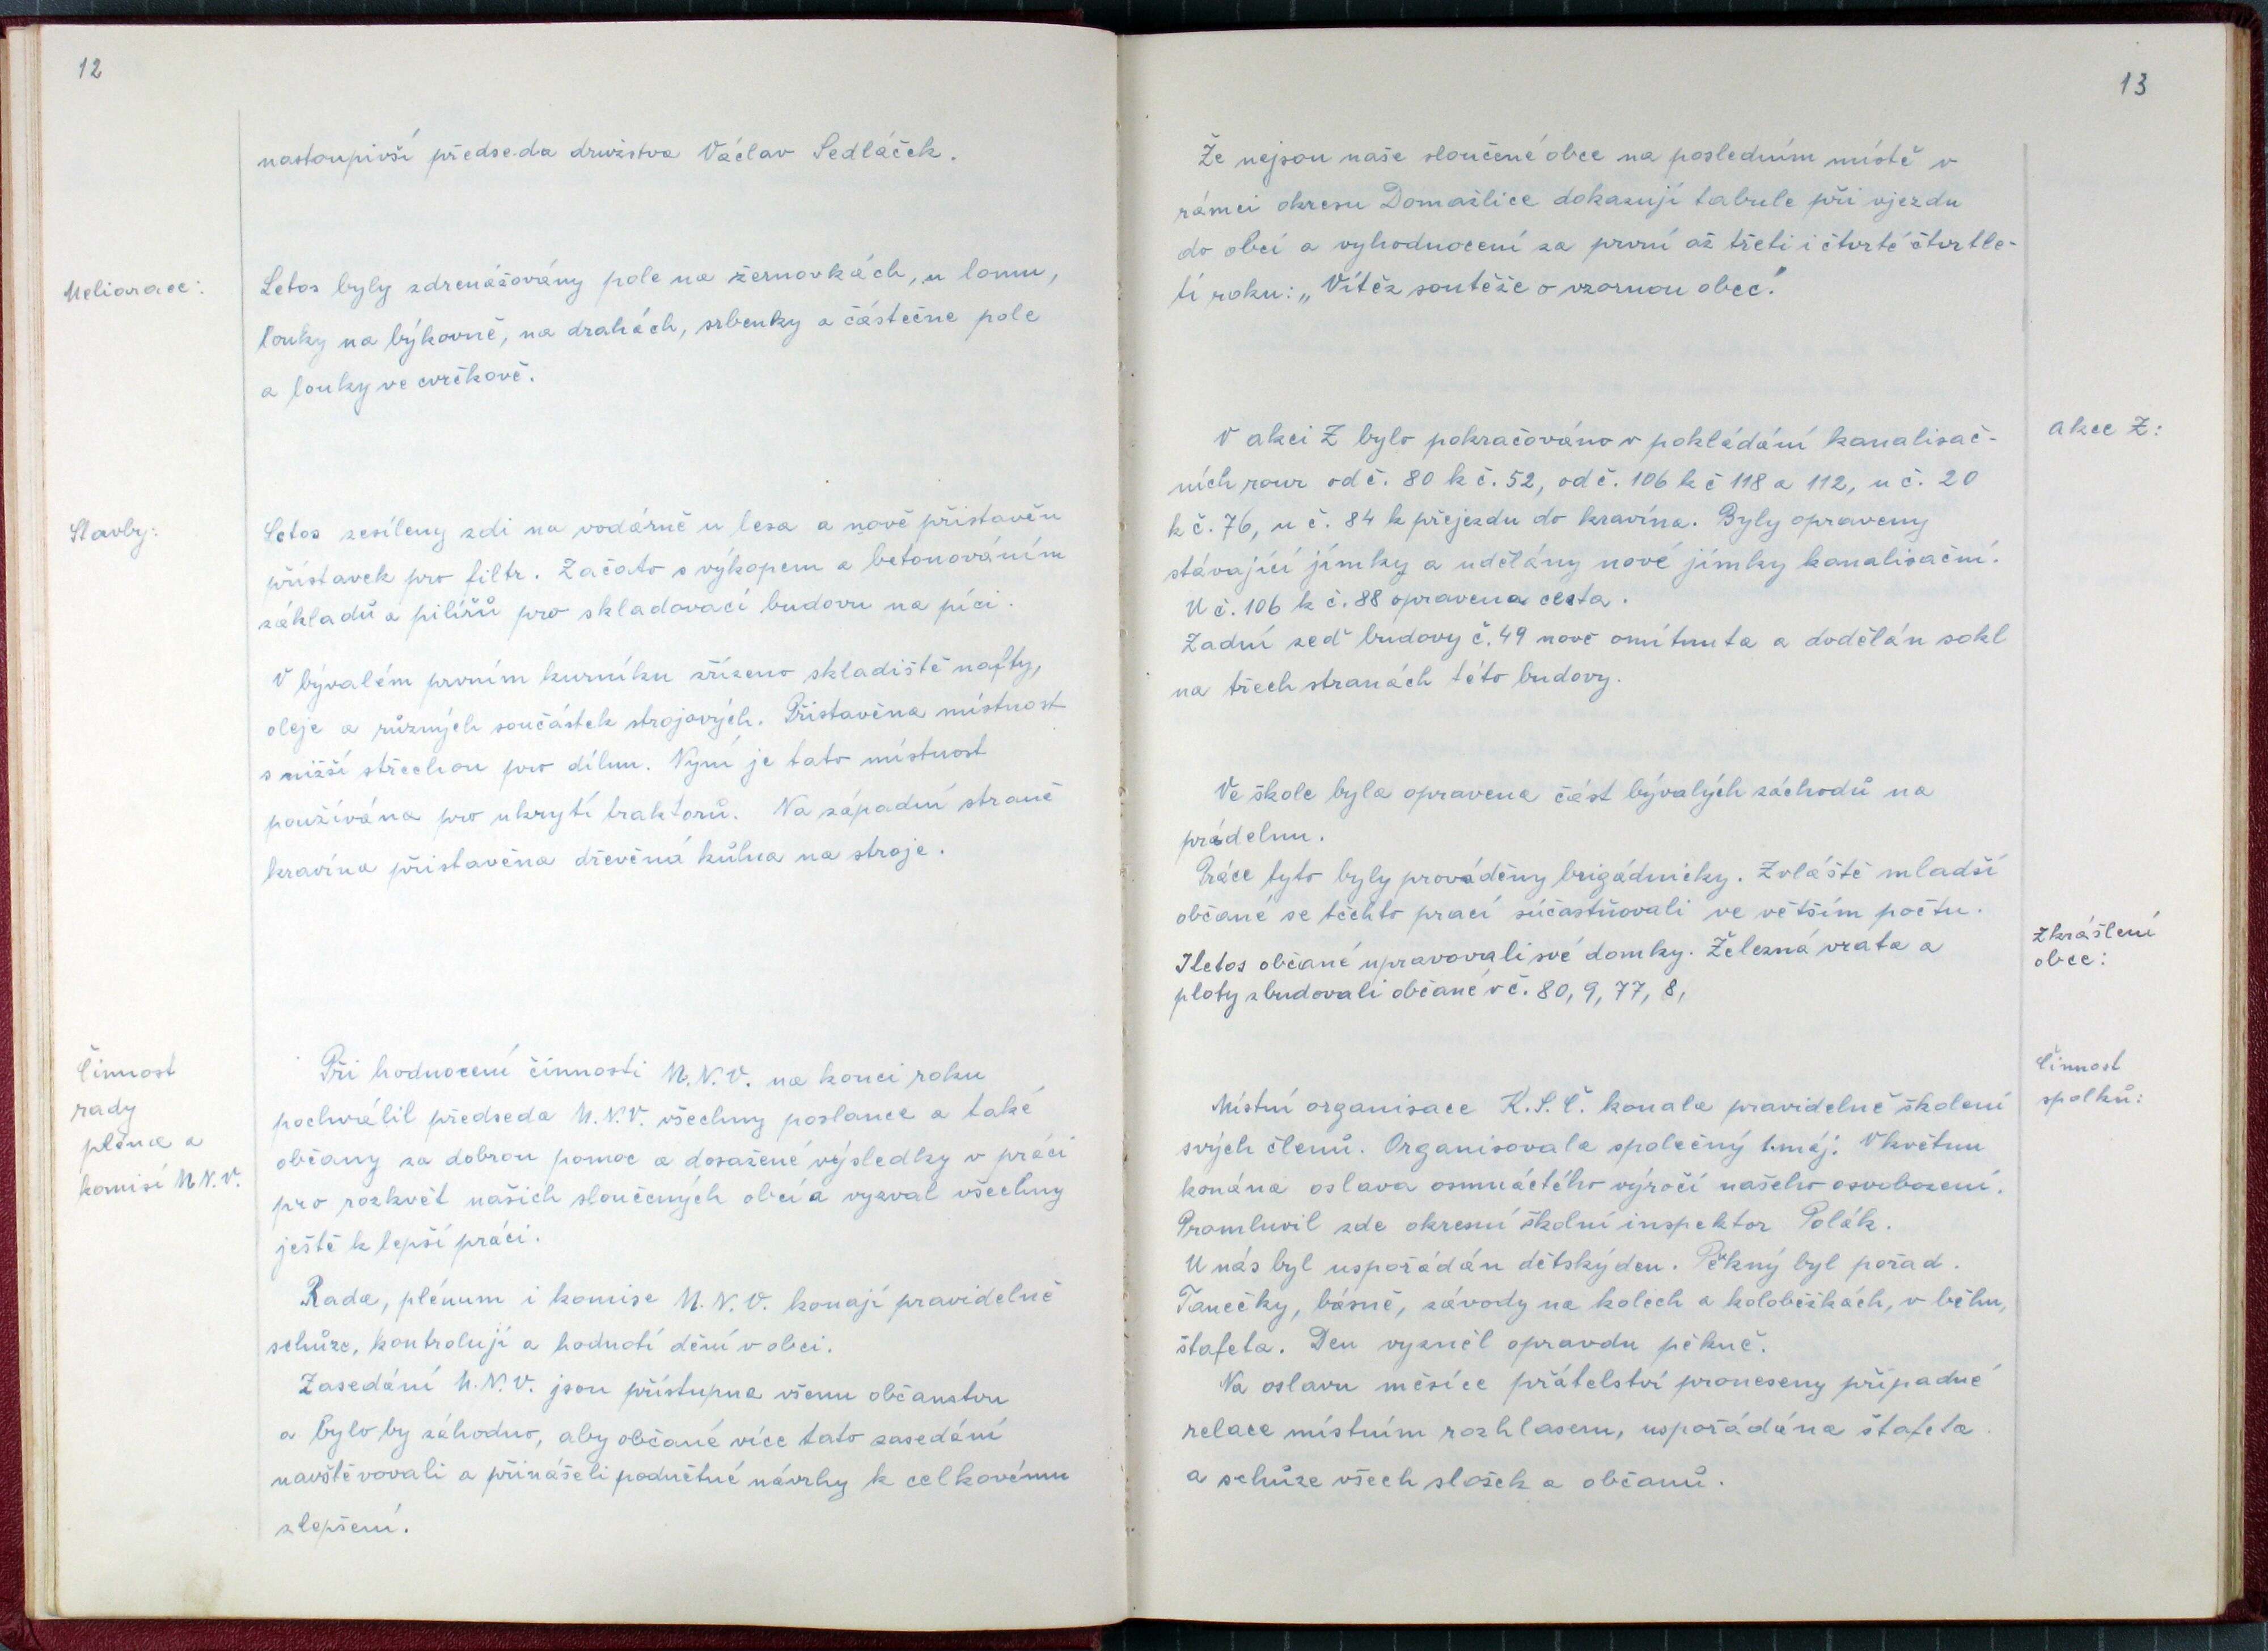 12
nastoupivší předseda družstva Václav Sedláček.
Meliorace:
Letos byly zdrenážovány pole na žernovkách, u lomu,
louky na býkovně, na drahách, srbenky a částečne pole
a louky ve cvrčkově.
Stavby:
Letos zesíleny zdi na vodárně u lesa a nově přistavěn
přístavek pro filtr. Začato s výkopem a betonováním
základů a pilířů pro skladovací budovu na píci.
V bývalém prvním kurníku zřízeno skladiště nafty,
oleje a různých součástek strojových. Přistavěna místnost
s nižší střechou pro dílnu. Nyní je tato místnost
používána pro ukrytí traktorů. Na západní straně
kravína přistavěna dřevěná kůlna na stroje.
Činnost
rady
pléna a
komisí M.N.V.
Při hodnocení činnosti M.N.V. na konci roku
pochválil předseda M.N.V. všechny poslance a také
občany za dobrou pomoc a dosažené výsledky v práci
pro rozkvět našich sloučených obcí a vyzval všechny
ještě k lepší práci.
Rada, plénum i komise M.N.V. konají pravidelně
schůze, kontrolují a hodnotí dění v obci.
Zasedání M.N.V. jsou přístupna všemu občanstvu
a bylo by záhodno, aby občané více tato zasedání
navštěvovali a přinášeli podnětné návrhy k celkovému
zlepšení.
13
Že nejsou naše sloučené obce na posledním místě v
rámci okresu Domažlice dokazují tabule při vjezdu
do obcí a vyhodnocení za první až třetí i čtvrté čtvrtle-
tí roku: „Vítěz soutěže o vzornou obec."
Akce Z:
V akci Z bylo pokračováno v pokládání kanalisač-
ních rour od č. 80 k č. 52, od č. 106 k č 118 a 112, u č. 20
k č. 76, u č. 84 k přejezdu do kravína. Byly opraveny
stávající jímky a udělány nové jímky kanalisační.
U č. 106 k č. 88 opravena cesta.
Zadní zeď budovy č. 49 nově omítnuta a dodělán sokl
na třech stranách této budovy.
Ve škole byla opravena část bývalých záchodů na
prádelnu.
Práce tyto byly prováděny brigádnicky. Zvláště mladší
občané se těchto prací súčastňovali ve větším počtu.
Zkrášlení
obce:
I letos občané upravovali své domky. Železná vrata a
ploty zbudovali občané v č. 80, 9, 77, 8,
Činnost
spolků:
Místní organisace K.S.Č. konala pravidelně školení
svých členů. Organisovala společný 1. máj. V květnu
konána oslava osmnáctého výročí našeho osvobození.
Promluvil zde okresní školní inspektor Polák.
U nás byl uspořádán dětský den. Pěkný byl pořad.
Tanečky, básně, závody na kolech a koloběžkách, v běhu,
štafeta. Den vyzněl opravdu pěkně.
Na oslavu měsíce přátelství proneseny případné
relace místním rozhlasem, uspořádána štafeta
a schůze všech složek a občanů.